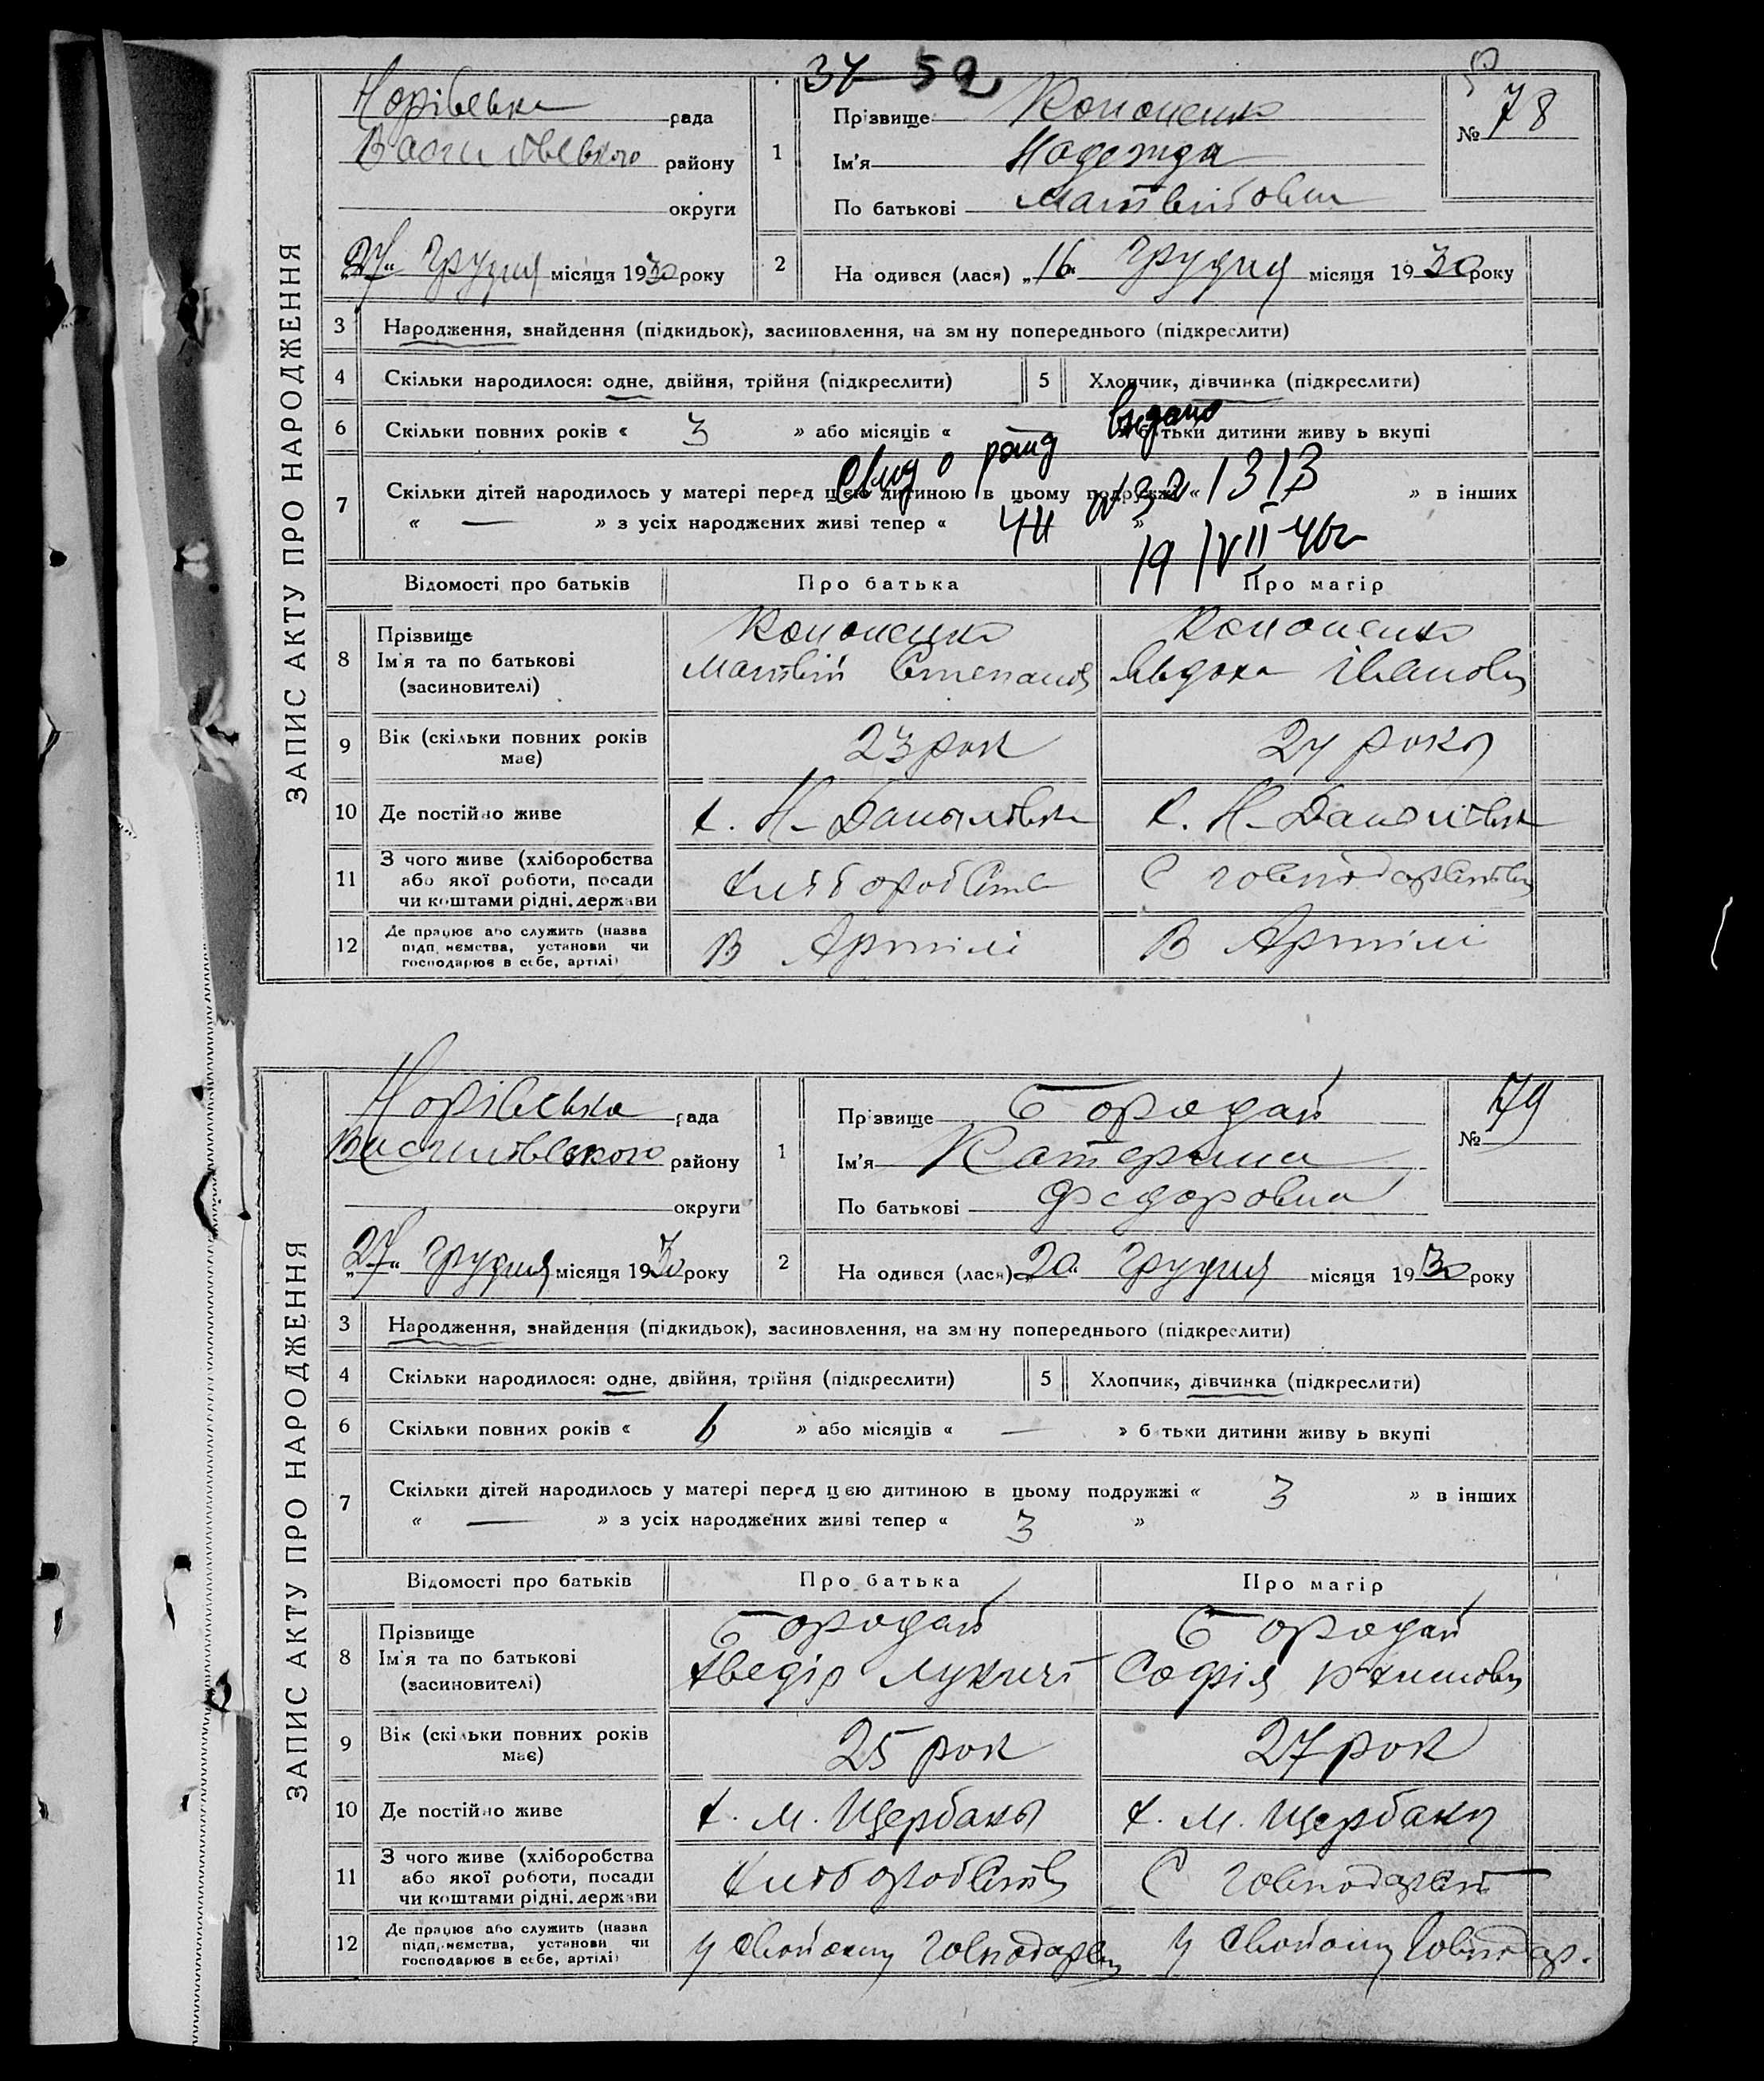 34 59
ЗАПИС АКТУ ПРО НАРОДЖЕННЯ
рада
району
округи
„27“ грудня місяця 1930 року
1
Прізвище Кононенко
Ім'я Надежда
По батькові Матвіївна
№ 78
2
На одився (лася) „16“ грудня місяця 1930 року
3 Народження, знайдення (підкидьок), засиновлення, на зм ну попереднього (підкреслити)
4 Скільки народилося: одне, двійня, трійня (підкреслити)
5 Хлопчик, дівчинка (підкреслити)
6 Скільки повних років « 3 » або місяців « — б тьки дитини живу ь вкупі
7 Скільки дітей народилось у матері перед цією дитиною в цьому подружжі « » в інших
« — » з усіх народжених живі тепер « »
Відомості про батьків Про батька Про матір
8 Прізвище
Ім'я та по батькові
(засиновителі)
Кононенко
Матвій Степанов
Кононенко
Івановн
9 Вік (скільки повних років
має)
23 рок
24 роки
10 Де постійно живе
х. Н-Данилівка
х. Н-Данилівка
11 З чого живе (хліборобства
або якої роботи, посади
чи коштами рідні, держави
хліборобства
С господарства
12 Де працює або служить (назва
підп, иємства, установи чи
господарює в себе, артілі)
в Артілі
в Артілі
ЗАПИС АКТУ ПРО НАРОДЖЕННЯ
рада
району
округи
„27“ грудня місяця 1930 року
1
Прізвище Бородай
Ім'я Катерина
По батькові Федоровна
№ 79
2
На одився (лася) 20 грудня місяця 1930 року
3 Народження, знайдення (підкидьок), засиновлення, на зм ну попереднього (підкреслити)
4 Скільки народилося: одне, двійня, трійня (підкреслити)
5 Хлопчик, дівчинка (підкреслити)
6 Скільки повних років « 6 » або місяців « — » б тьки дитини живу ь вкупі
7 Скільки дітей народилось у матері перед цією дитиною в цьому подружжі « 3 » в інших
« — » з усіх народжених живі тепер « 3 »
Відомості про батьків Про батька Про матір
8 Прізвище
Ім'я та по батькові
(засиновителі)
Бородай
Хведір Лукич
Бородай
Софія
9 Вік (скільки повних років
має)
25 рок
27 рок
10 Де постійно живе
х. М. Щербаки
х. М. Щербаки
11 З чого живе (хліборобства
або якої роботи, посади
чи коштами рідні, держави
хліборобств
С господарст
12 Де працює або служить (назва
підп, иємства, установи чи
господарює в себе, артілі)
У своїому господарст
У своїому господар.